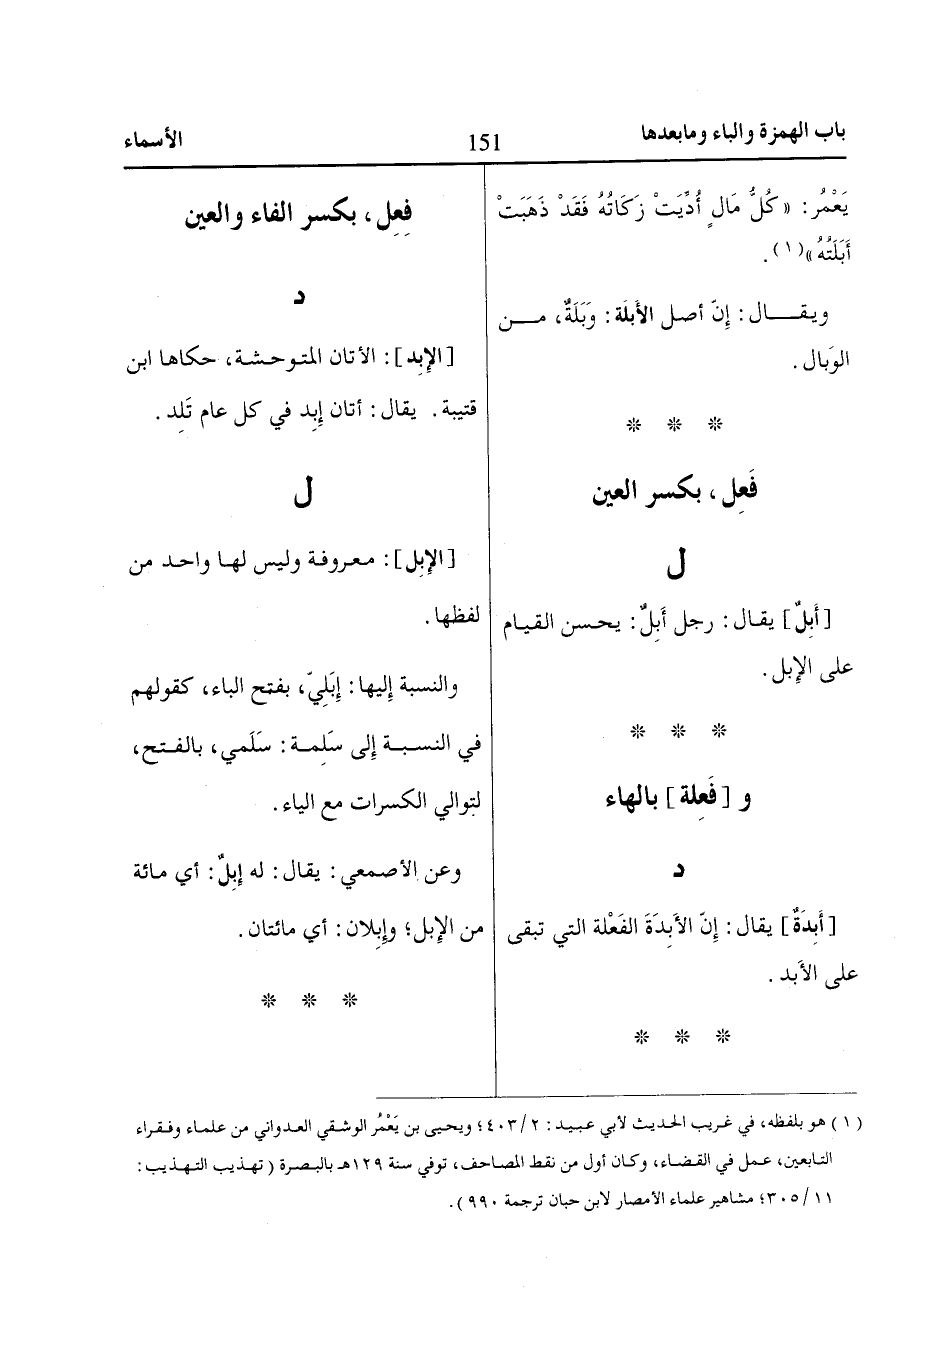 باب الهمزة والباء ومابعدها
151
الأسماء
يَعْمُر: «كُلُّ مَالٍ أُدِّيَتْ زَكَاتُهُ فَقَدْ ذَهَبَتْ
أَبَلَتُهُ»(١).
ويقــــال: إِنّ أصل الأَبلَة: وَبَلَةٌ، مـــن
الوَبال.
* * *
فَعِل، بكسر العين
ل
[أَبِلٌ] يقال: رجل أَبِلٌ: يحسن القيام
على الإِبل.
* * *
و [فَعِلة] بالهاء
د
[أَبِدَةٌ] يقال: إِنّ الأَبِدَةَ الفَعْلة التي تبقى
على الأَبد.
* * *
فِعِل، بكسر الفاء والعين
د
[الإِبِد]: الأتان المتوحشة، حكاها ابن
قتيبة. يقال: أتان إِبِد في كل عام تَلِد.
ل
[الإِبِل]: معروفة وليس لها واحد من
لفظها.
والنسبة إليها: إِبَلِيّ، بفتح الباء، كقولهم
في النسبة إلى سَلِمة: سَلَمي، بالفتح،
لتوالي الكسرات مع الياء.
وعن الأصمعي: يقال: له إِبِلٌ: أي مائة
من الإِبل؛ وإِبِلان: أي مائتان.
* * *
(١) هو بلفظه، في غريب الحديث لأبي عبيد: ٤٠٣/٢؛ ويحيى بن يَعْمُر الوشقي العدواني من علماء وفقراء
التابعين، عمل في القضاء، وكان أول من نقط المصاحف، توفي سنة ١٢٩هـ بالبصرة (تهذيب التهذيب:
٣٠٥/١١؛ مشاهير علماء الأمصار لابن حبان ترجمة ٩٩٠).